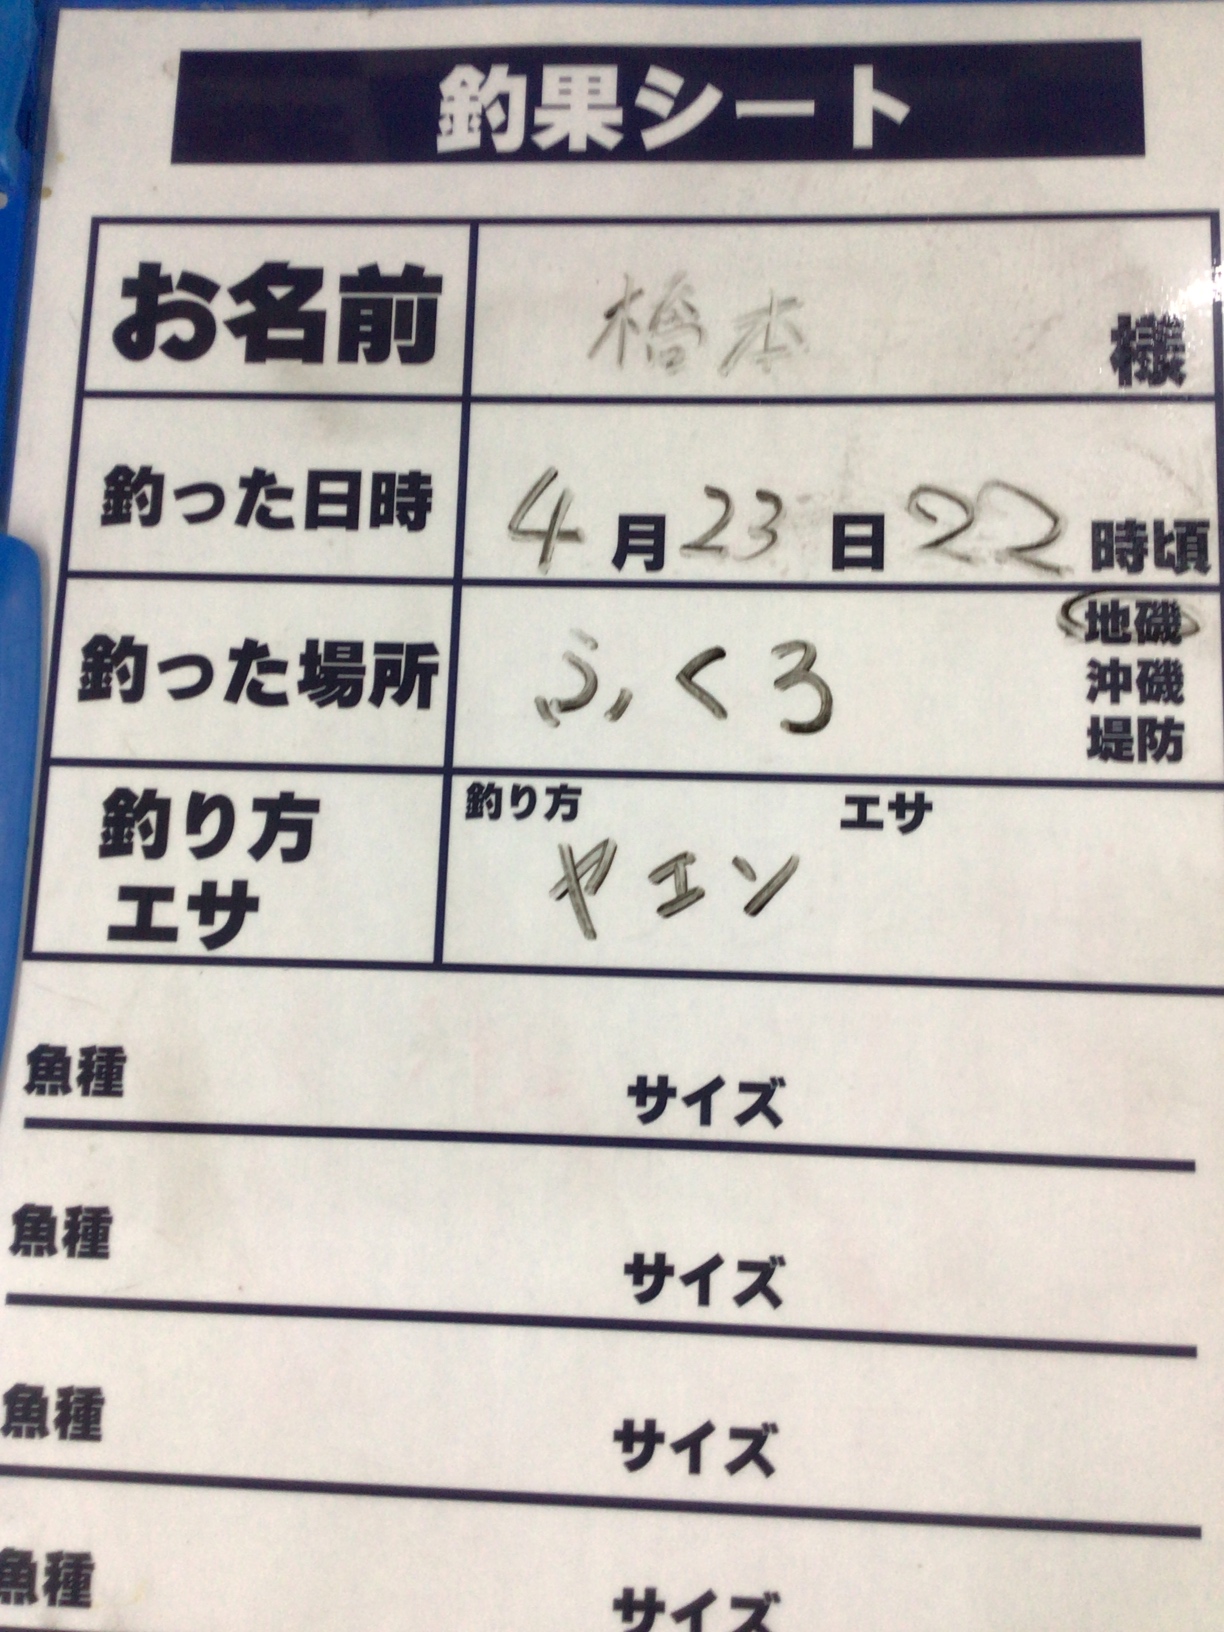 釣果シート
お名前 橋本 様
釣った日時 4月23日22時頃
釣った場所 ふくろ 地磯
沖磯
堤防
釣り方 釣り方 エサ
エサ ヤエン
魚種 サイズ
魚種 サイズ
魚種 サイズ
魚種 サイズ